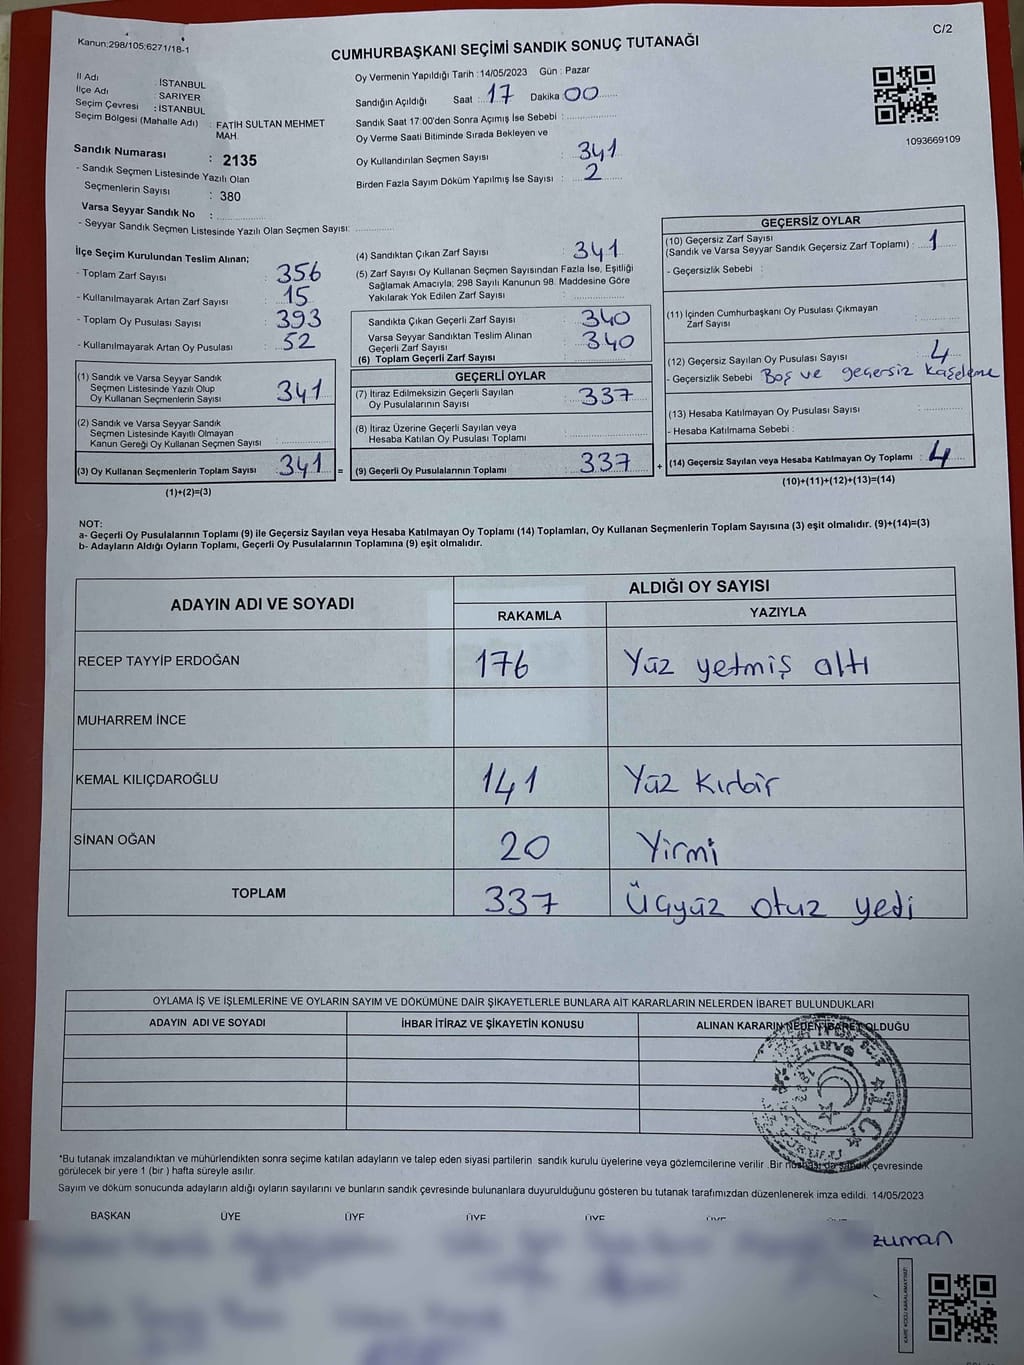 Kanun:298/105;6271/18-1
C/2
CUMHURBAŞKANI SEÇİMİ SANDIK SONUÇ TUTANAĞI
İl Adı : İSTANBUL
İlçe Adı : SARIYER
Seçim Çevresi : İSTANBUL
Seçim Bölgesi (Mahalle Adı) : FATİH SULTAN MEHMET MAH.
Sandık Numarası : 2135
- Sandık Seçmen Listesinde Yazılı Olan
Seçmenlerin Sayısı : 380
Varsa Seyyar Sandık No :
- Seyyar Sandık Seçmen Listesinde Yazılı Olan Seçmen Sayısı:
Oy Vermenin Yapıldığı Tarih :14/05/2023 Gün : Pazar
Sandığın Açıldığı Saat : 17 Dakika 00
Sandık Saat 17:00'den Sonra Açımış İse Sebebi :
Oy Verme Saati Bitiminde Sırada Bekleyen ve
Oy Kullandırılan Seçmen Sayısı : 341
Birden Fazla Sayım Döküm Yapılmış İse Sayısı : 2
1093669109
İlçe Seçim Kurulundan Teslim Alınan;
- Toplam Zarf Sayısı : 356
- Kullanılmayarak Artan Zarf Sayısı : 15
- Toplam Oy Pusulası Sayısı : 393
- Kullanılmayarak Artan Oy Pusulası : 52
(1) Sandık ve Varsa Seyyar Sandık
Seçmen Listesinde Yazılı Olup
Oy Kullanan Seçmenlerin Sayısı : 341
(2) Sandık ve Varsa Seyyar Sandık
Seçmen Listesinde Kayıtlı Olmayan
Kanun Gereği Oy Kullanan Seçmen Sayısı :
(3) Oy Kullanan Seçmenlerin Toplam Sayısı : 341 =
(1)+(2)=(3)
(4) Sandıktan Çıkan Zarf Sayısı : 341
(5) Zarf Sayısı Oy Kullanan Seçmen Sayısından Fazla İse, Eşitliği
Sağlamak Amacıyla; 298 Sayılı Kanunun 98. Maddesine Göre
Yakılarak Yok Edilen Zarf Sayısı :
Sandıkta Çıkan Geçerli Zarf Sayısı : 340
Varsa Seyyar Sandıktan Teslim Alınan
Geçerli Zarf Sayısı : 340
(6) Toplam Geçerli Zarf Sayısı :
GEÇERLİ OYLAR
(7) İtiraz Edilmeksizin Geçerli Sayılan
Oy Pusulalarının Sayısı : 337
(8) İtiraz Üzerine Geçerli Sayılan veya
Hesaba Katılan Oy Pusulası Toplamı :
(9) Geçerli Oy Pusulalarının Toplamı : 337 +
GEÇERSİZ OYLAR
(10) Geçersiz Zarf Sayısı
(Sandık ve Varsa Seyyar Sandık Geçersiz Zarf Toplamı) : 1
- Geçersizlik Sebebi :
(11) İçinden Cumhurbaşkanı Oy Pusulası Çıkmayan
Zarf Sayısı :
(12) Geçersiz Sayılan Oy Pusulası Sayısı : 4
- Geçersizlik Sebebi Boş ve geçersiz kaşeleme
(13) Hesaba Katılmayan Oy Pusulası Sayısı :
- Hesaba Katılmama Sebebi :
(14) Geçersiz Sayılan veya Hesaba Katılmayan Oy Toplamı : 4
(10)+(11)+(12)+(13)=(14)
NOT:
a- Geçerli Oy Pusulalarının Toplamı (9) ile Geçersiz Sayılan veya Hesaba Katılmayan Oy Toplamı (14) Toplamları, Oy Kullanan Seçmenlerin Toplam Sayısına (3) eşit olmalıdır. (9)+(14)=(3)
b- Adayların Aldığı Oyların Toplamı, Geçerli Oy Pusulalarının Toplamına (9) eşit olmalıdır.
ADAYIN ADI VE SOYADI
ALDIĞI OY SAYISI
RAKAMLA YAZIYLA
RECEP TAYYİP ERDOĞAN 176 Yüz yetmiş altı
MUHARREM İNCE
KEMAL KILIÇDAROĞLU 141 Yüz Kırbir
SİNAN OĞAN 20 Yirmi
TOPLAM 337 Üçyüz otuz yedi
OYLAMA İŞ VE İŞLEMLERİNE VE OYLARIN SAYIM VE DÖKÜMÜNE DAİR ŞİKAYETLERLE BUNLARA AİT KARARLARIN NELERDEN İBARET BULUNDUKLARI
ADAYIN ADI VE SOYADI İHBAR İTİRAZ VE ŞİKAYETİN KONUSU ALINAN KARARIN NEDEN İBARET OLDUĞU
T.C.
*Bu tutanak imzalandıktan ve mühürlendikten sonra seçime katılan adayların ve talep eden siyasi partilerin sandık kurulu üyelerine veya gözlemcilerine verilir .Bir nüshası da sandık çevresinde
görülecek bir yere 1 (bir ) hafta süreyle asılır.
Sayım ve döküm sonucunda adayların aldığı oyların sayılarını ve bunların sandık çevresinde bulunanlara duyurulduğunu gösteren bu tutanak tarafımızdan düzenlenerek imza edildi. 14/05/2023
BAŞKAN ÜYE ÜYE ÜYE ÜYE ÜYE
zuman
KARE KODU KARALAMAYINIZ!